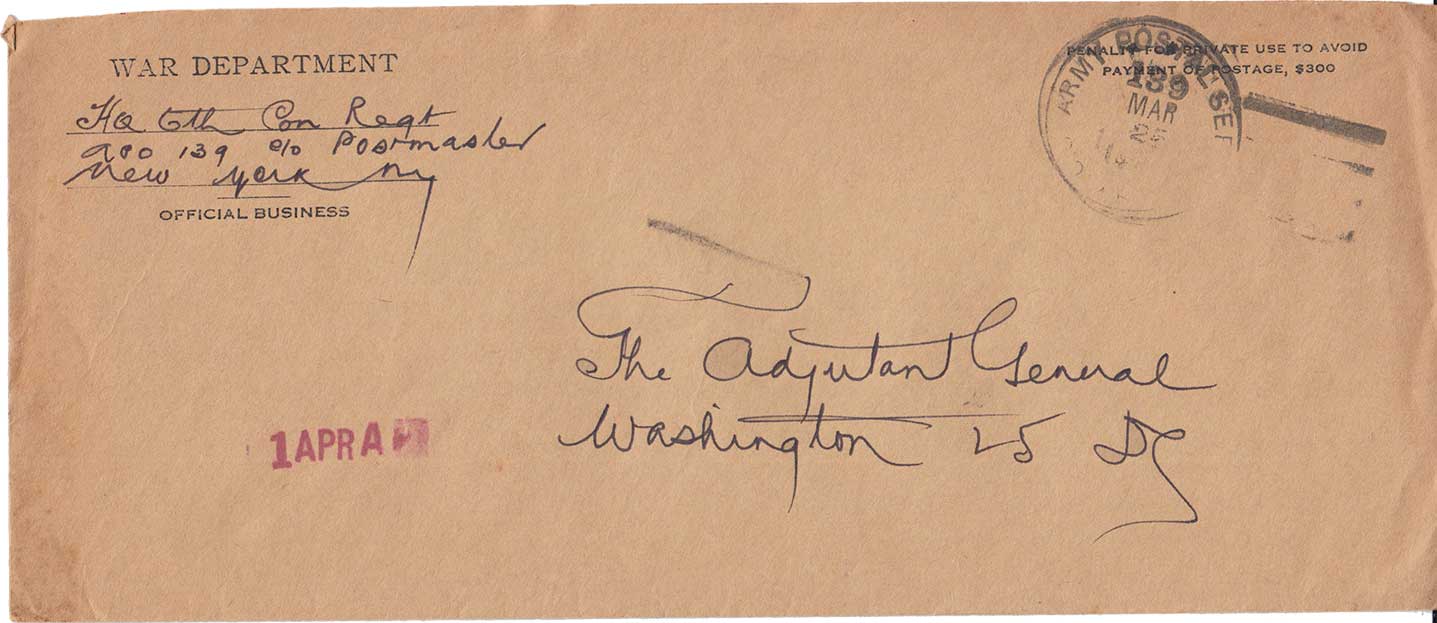 WAR DEPARTMENT
HQ 6th Con Regt
APO 139 c/o Postmaster
New York NY
OFFICIAL BUSINESS
PENALTY FOR PRIVATE USE TO AVOID
PAYMENT OF POSTAGE, $300
ARMY POSTAL SER
139
MAR
The Adjutant General
Washington 25 DC
1 APR A